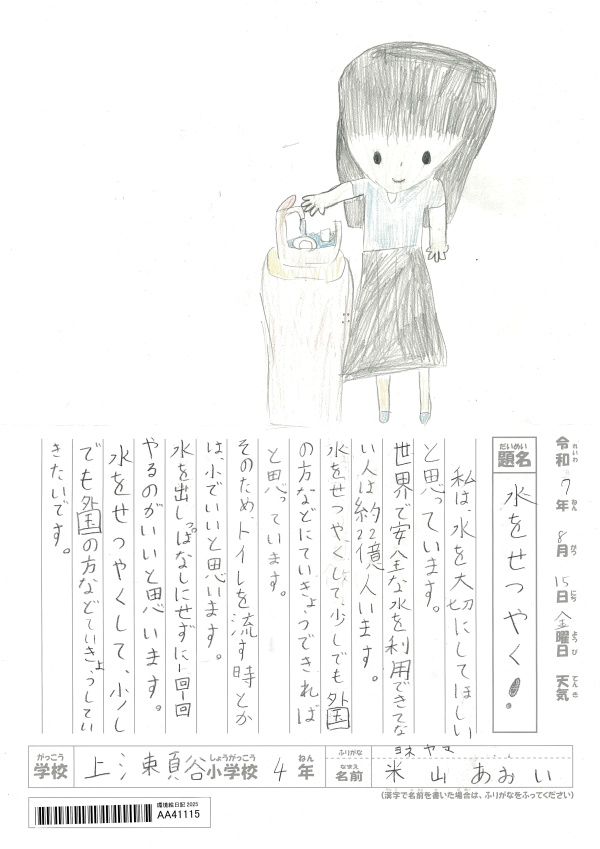 令和 7年 8月 15日 金曜日 天気
れいわ ねん がつ にち ようび てんき
だいめい
題名
水をせつやく!
私は、水を大切にしてほしい
と思っています。
世界で安全な水を利用できてな
い人は約22億人います。
水をせつやくして、少しでも外国
の方などにていきょうできれば
と思っています。
そのため、トイレを流す時とか
は、小でいいと思います。
水を出しっぱなしにせずに一回一回
やるのがいいと思います。
水をせつやくして、少し
でも外国の方などていきょうしてい
きたいです。
がっこう
学校
上 谷小学校
しょうがっこう
4年
ねん
ふりがな
なまえ
名前
ヨネ ヤマ
米山 あおい
(漢字で名前を書いた場合は、ふりがなをふってください)
環境絵日記 2025
AA41115